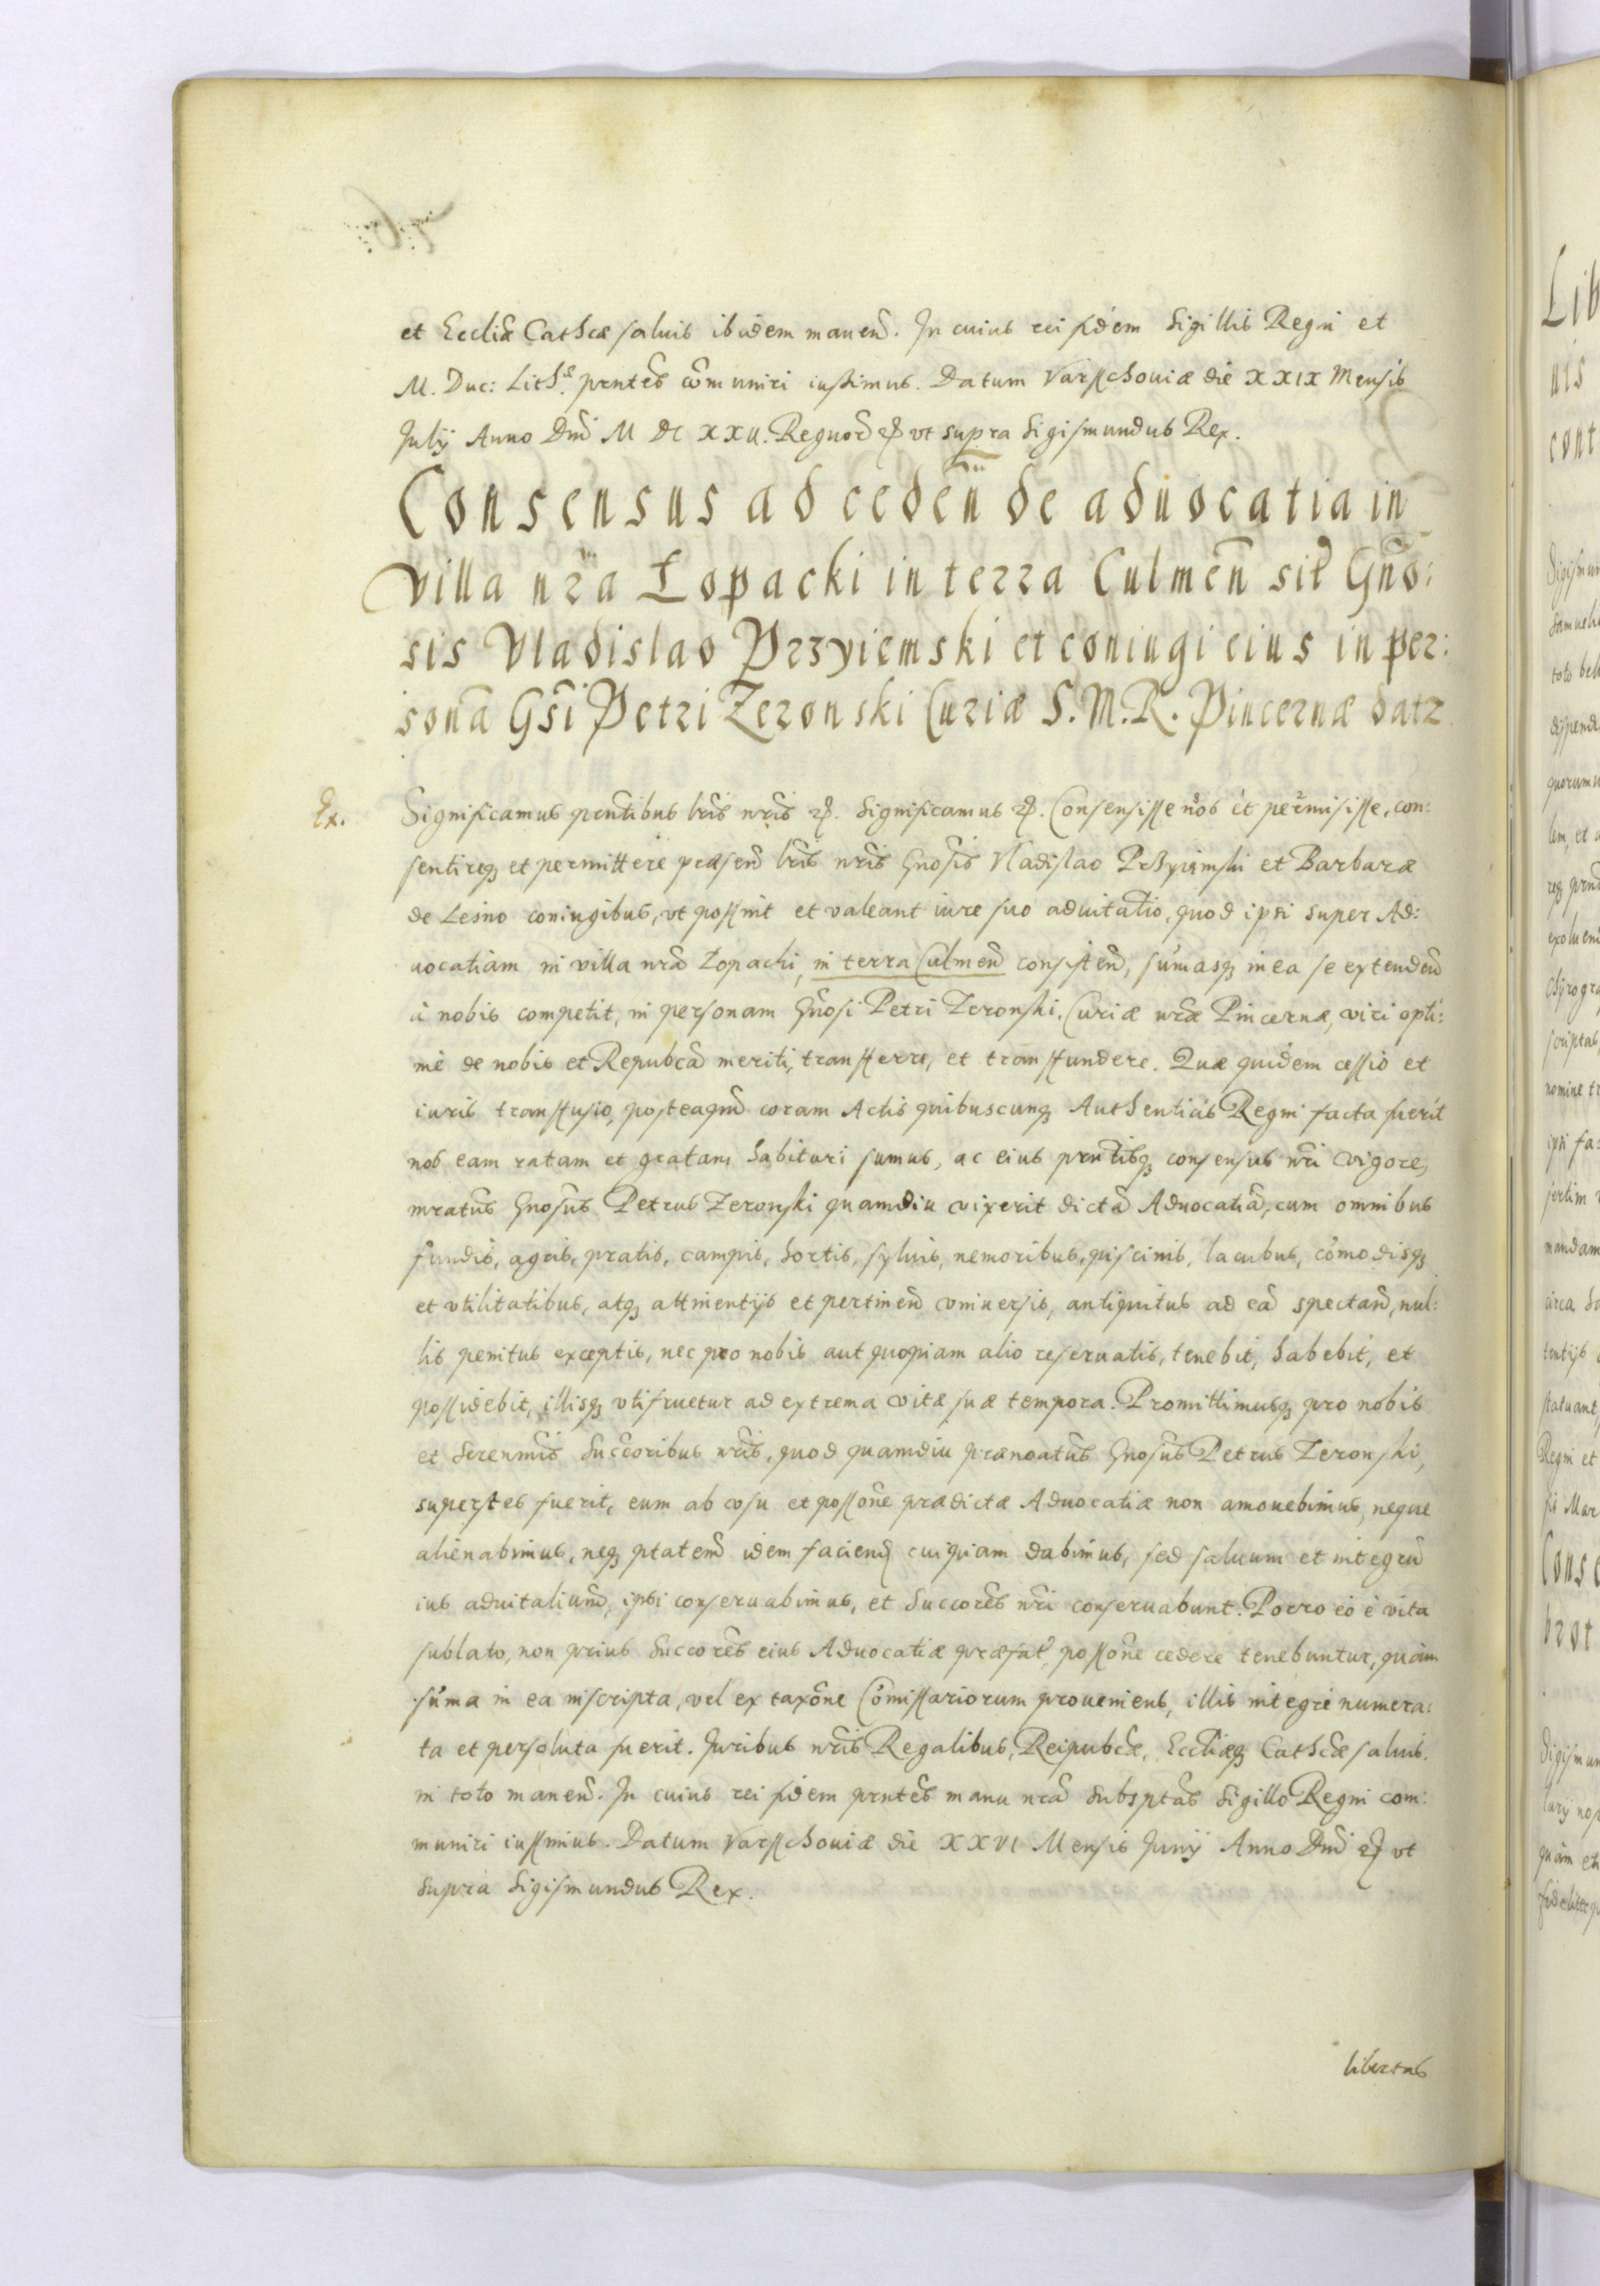 et Eccliæ Cathcæ saluis ibidem manen̄. In cuius rei fidem Sigillis Regni et
M. Duc: Lith: prntes com̄uniri iussimus. Datum Varsschouiæ die XXIX Mensis
Julij Anno Dni M DC XXV. Regnor̄ etc vt supra Sigismundus Rex.
Consensus ad ceden̄ de aduocatia in
villa nr̄a Łopacki in terra Culmen̄ sit̄ Gn̄o:
sis Vladislao Przyiemski et coniugi eius in per:
sonā Gs̄i Petri Zeronski Curiæ S. M. R. Pincernæ datr
Ex.
Significamus prntibus lris nris etc. Significamus etc. Consensisse nos et permisisse, con:
sentireq; et permittere præsen̄ lris nris Gnosis Vladislao Przyiemski et Barbaræ
de Lesno coniugibus, vt possint et valeant iure suo aduitatio, quod ipsi super Ad:
uocatiam in villa nrā Łopacki, in terra Culmen̄ consisten̄, sūmasq; in ea se extenden̄
à nobis competit, in personam Gnosi Petri Zeronski, Curiæ nræ Pincernæ, viri opti:
mè de nobis et Repubcā meriti, transferre, et transfundere. Quæ quidem cessio et
iuris transfusio, posteaqm̄ coram Actis quibuscunq; Authenticis Regni facta fuerit
nos eam ratam et gratam habituri sumus, ac eius prntisq; consensus nri vigore,
mratus Gnosus Petrus Zeronski quamdiu vixerit dictā Aduocatiā, cum omnibus
fundis, agris, pratis, campis, hortis, syluis, nemoribus, piscinis, lacubus, cōmodisq;
et vtilitatibus, atq; attinentijs et pertinen̄ vniuersis, antiquitus ad eā spectan̄, nul:
lis penitus exceptis, nec pro nobis aut quopiam alio reseruatis, tenebit, habebit, et
possidebit, illisq; vtifruetur ad extrema vitæ suæ tempora. Promittimusq; pro nobis
et Serenmis Succoribus nris, quod quamdiu prænoatus Gnosus Petrus Zeronski,
superstes fuerit, eum ab vsu et possone prædictæ Aduocatiæ non amouebimus, neque
alienabimus, neq; ptatem idem faciend cuiquam dabimus, sed saluum et integrū
ius aduitalium, ipsi conseruabimus, et Succores nri conseruabunt. Porro eo è vita
sublato, non prius Succores eius Aduocatiæ præfat̄, possone cedere tenebuntur, quàm
sūma in ea inscripta, vel ex taxone Cōmissariorum proueniens, illis integrè numera:
ta et persoluta fuerit. Juribus nris Regalibus, Reipubcæ, Eccliæq; Cathcæ saluis.
in toto manen̄. In cuius rei fidem prntes manu nrā Subsptas Sigillo Regni com:
muniri iussimus. Datum Varsschouiæ die XXVI Mensis Junij Anno Dni etc vt
supra Sigismundus Rex.
libertas